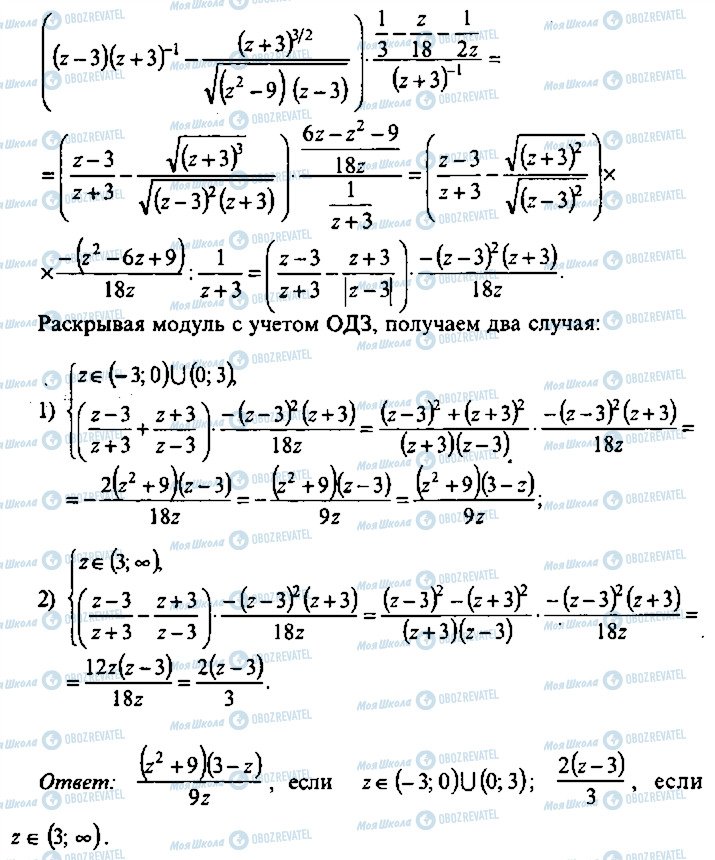 ( (z−3)(z+3)⁻¹ − (z+3)^{3/2} / √((z²−9)(z−3)) ) · (1/3 − z/18 − 1/(2z)) / (z+3)⁻¹ =
= ( (z−3)/(z+3) − √((z+3)³) / √((z−3)²(z+3)) ) ((6z−z²−9)/(18z)) / (1/(z+3)) = ( (z−3)/(z+3) − √((z+3)²) / √((z−3)²) ) ×
× −(z²−6z+9)/(18z) : 1/(z+3) = ( (z−3)/(z+3) − (z+3)/|z−3| ) · −(z−3)²(z+3)/(18z).
Раскрывая модуль с учетом ОДЗ, получаем два случая:
1) { z∈(−3; 0)∪(0; 3),
( (z−3)/(z+3) + (z+3)/(z−3) ) · −(z−3)²(z+3)/(18z) = ((z−3)²+(z+3)²)/((z+3)(z−3)) · −(z−3)²(z+3)/(18z) =
= − 2(z²+9)(z−3)/(18z) = − (z²+9)(z−3)/(9z) = (z²+9)(3−z)/(9z);
2) { z∈(3; ∞),
( (z−3)/(z+3) − (z+3)/(z−3) ) · −(z−3)²(z+3)/(18z) = ((z−3)²−(z+3)²)/((z+3)(z−3)) · −(z−3)²(z+3)/(18z) =
= 12z(z−3)/(18z) = 2(z−3)/3.
Ответ: (z²+9)(3−z)/(9z), если z∈(−3; 0)∪(0; 3); 2(z−3)/3, если
z∈(3; ∞).
Моя Школа OBOZREVATEL